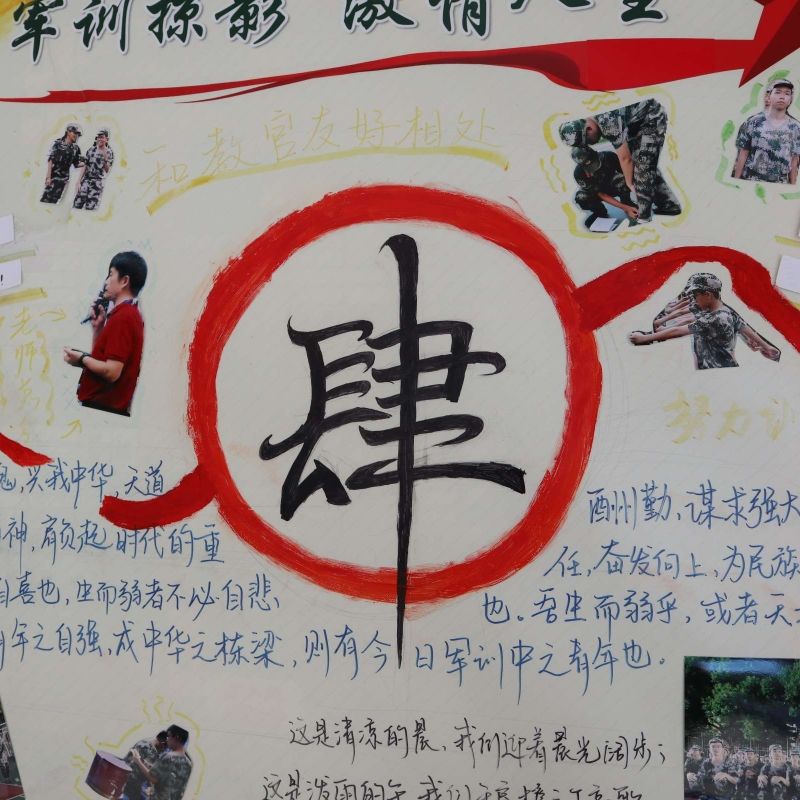 军训掠影 激情人生
和教官友好相处
老师
肆
努力
兴我中华,天道
酬州勤、谋求强大
神,肩负起时代的重
任,奋发向上,为民族
自喜也,生而弱者不必自悲
也。吾生而弱乎,或者天
年之自强,成中华之栋梁,则有今日军训中之青年也。
这是清凉的晨,我们迎着晨光阔步;
这是泼雨的午,我们